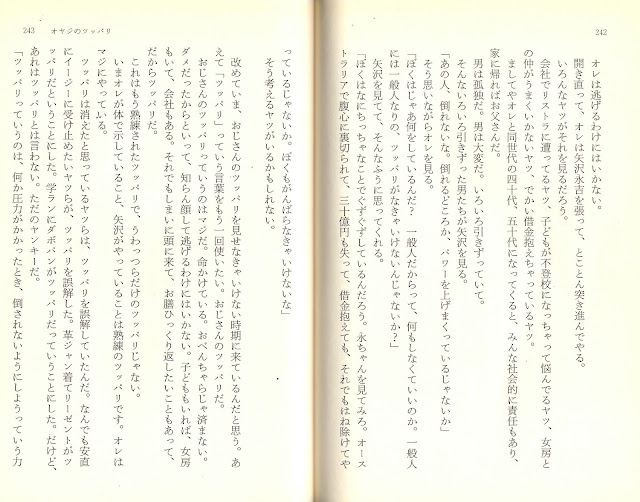 242
オレは逃げるわけにはいかない。
開き直って、オレは矢沢永吉を張って、とことん突き進んでやる。
いろんなヤツがそれを見るだろう。
会社でリストラに遭ってるヤツ、子どもが不登校になっちゃって悩んでるヤツ、女房と
の仲がうまくいかないヤツ、でかい借金抱えちゃっているヤツ。
ましてやオレと同世代の四十代、五十代になってくると、みんな社会的に責任もあり、
家に帰ればお父さんだ。
男は孤独だ。男は大変だ。いろいろ引きずっていて。
そんないろいろ引きずった男たちが矢沢を見る。
「あの人、倒れないな。倒れるどころか、パワーを上げまくっているじゃないか」
そう思いながらオレを見る。
「ぼくはじゃあ何をしているんだ?　一般人だからって、何もしなくていいのか。一般人
には一般人なりの、ツッパリがなきゃいけないんじゃないか?」
矢沢を見てて、そんなふうに思ってくれる。
「ぼくはなにちっちゃなことでぐずぐずしているんだろう。永ちゃんを見てみろ。オース
トラリアで腹心に裏切られて、三十億円も失って、借金抱えても、それでもはね除けてや
243 オヤジのツッパリ
っているじゃないか。ぼくもがんばらなきゃいけないな」
そう考えるヤツがいるかもしれない。
改めていま、おじさんのツッパリを見せなきゃいけない時期に来ているんだと思う。あ
えて「ツッパリ」っていう言葉をもう一回使いたい。おじさんのツッパリだ。
おじさんのツッパリっていうのはマジだ。命かけている。おべんちゃらじゃ済まない。
ダメだったからといって、知らん顔して逃げるわけにはいかない。子どももいれば、女房
もいて、会社もある。それでもしまいに頭に来て、お膳ひっくり返したいこともあって、
だからツッパリだ。
これはもう熟練されたツッパリで、うわっつらだけのツッパリじゃない。
いまオレが体で示していること、矢沢がやっていることは熟練のツッパリです。オレは
マジにやっている。
ツッパリは消えたと思っているヤツらは、ツッパリを誤解していたんだ。なんでも安直
にイージーに受け止めたいヤツらが、ツッパリを誤解した。革ジャン着てリーゼントがツ
ッパリだということにした。学ランにダボパンがツッパリだっていうことにした。だけど、
あれはツッパリとは言わない。ただのヤンキーだ。
「ツッパリっていうのは、何か圧力がかかったとき、倒されないようにしようっていう力